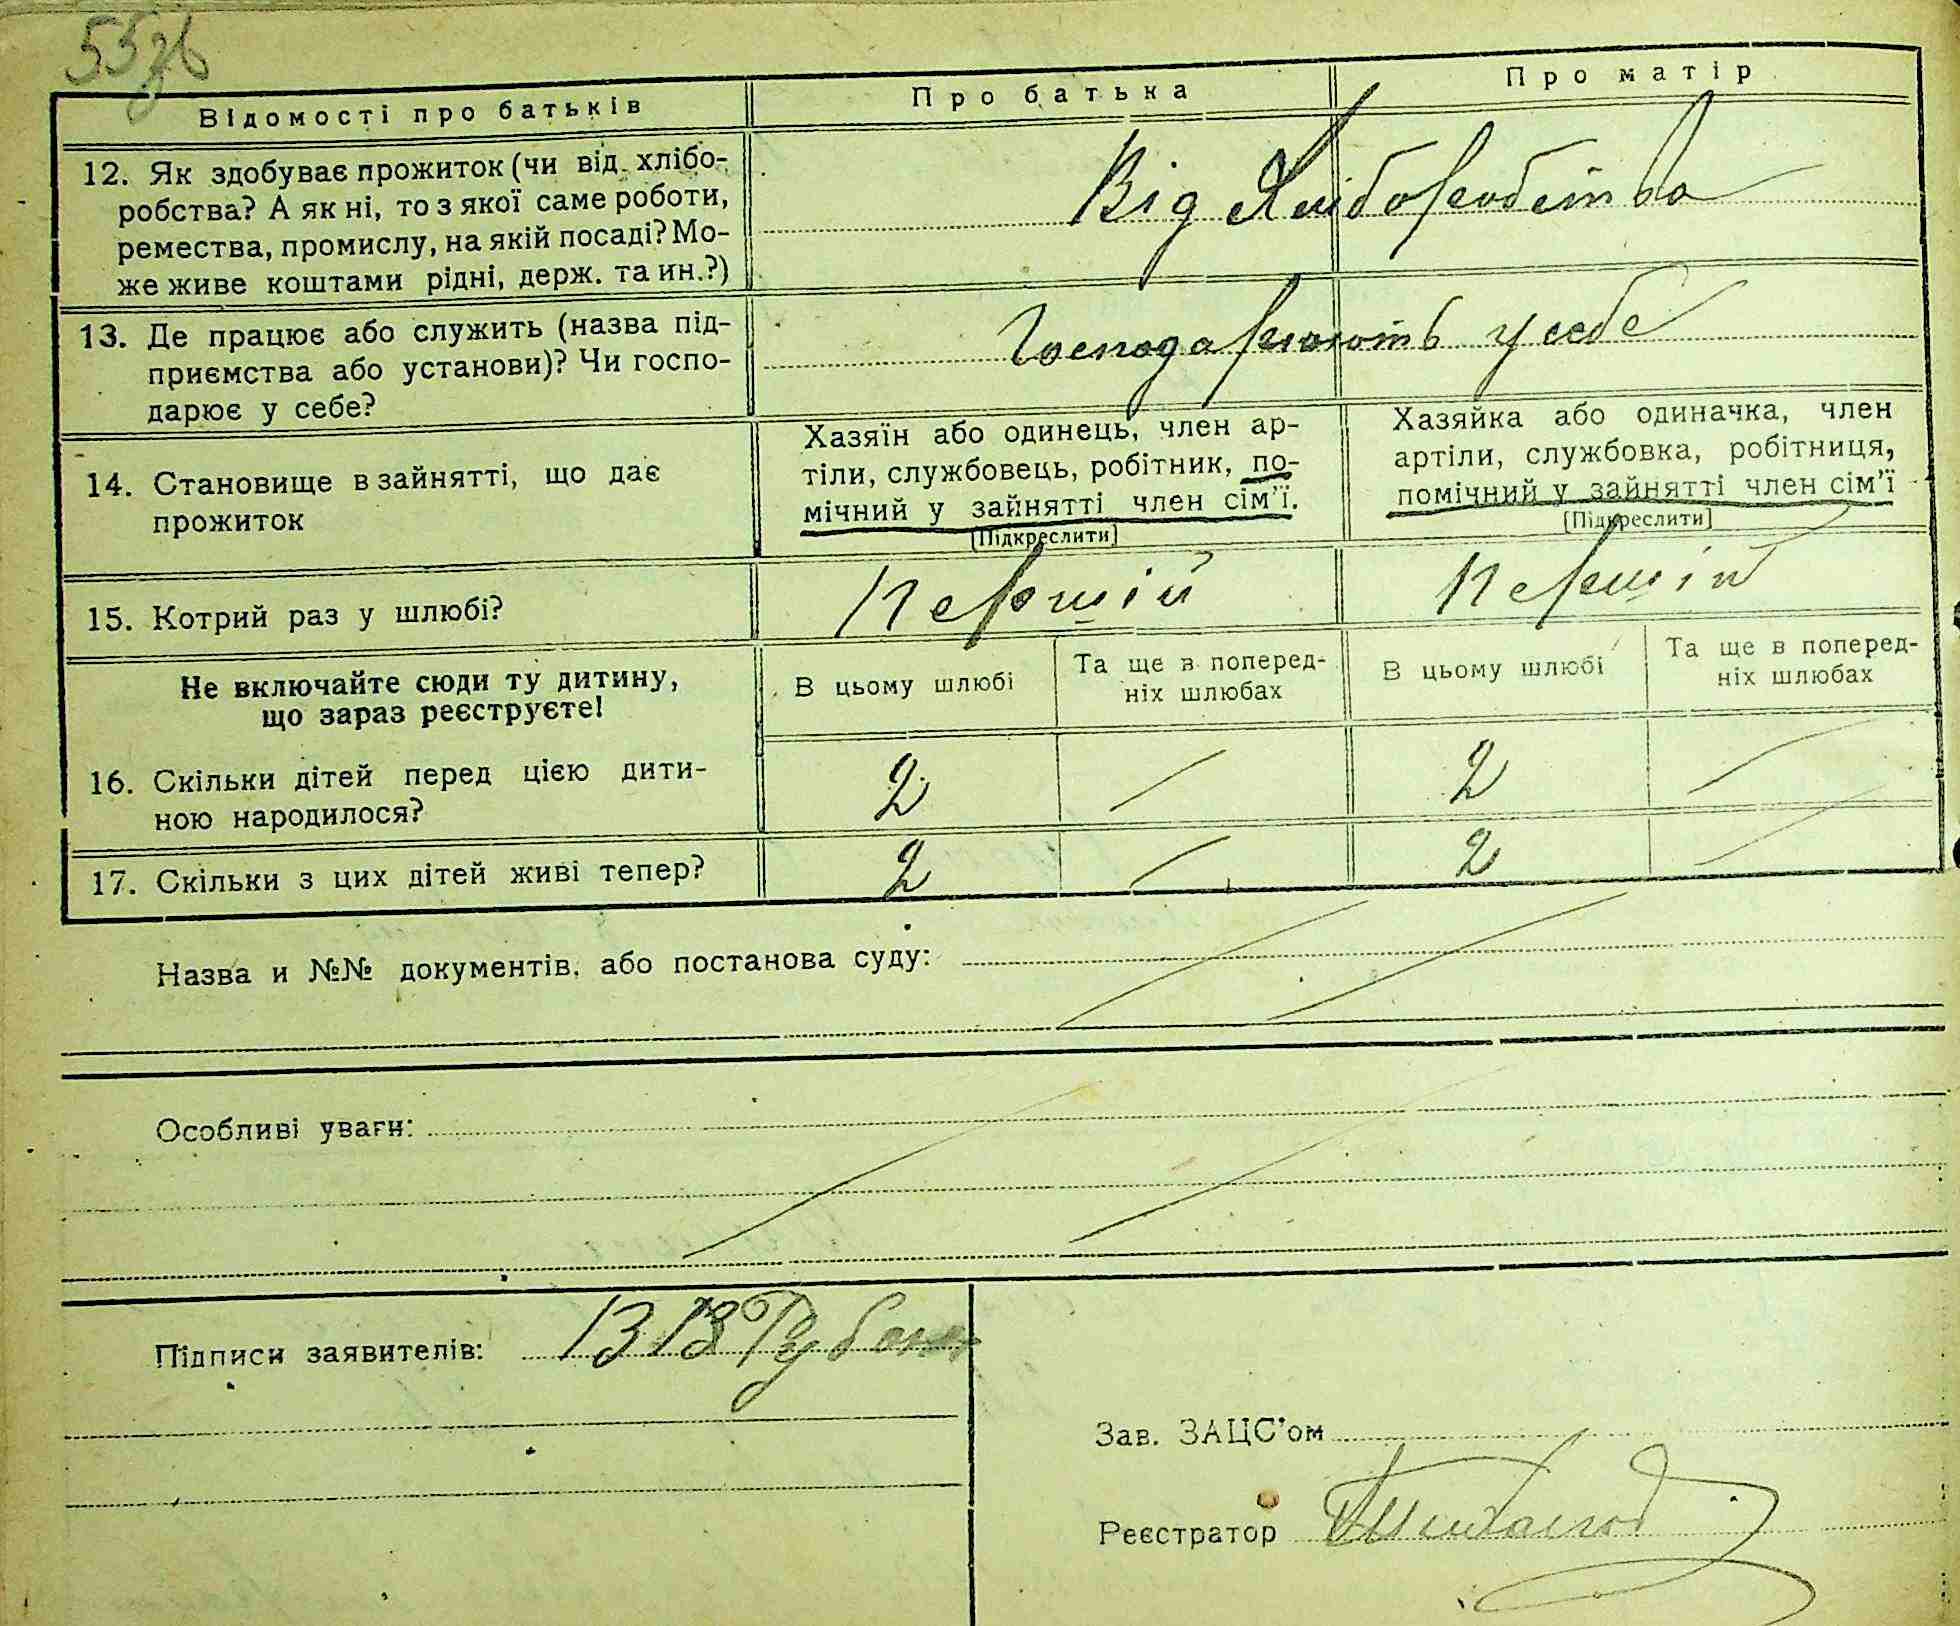 55зв
Відомості про батьків Про батька Про матір
12. Як здобуває прожиток (чи від хлібо-
робства? А як ні, то з якої саме роботи,
ремества, промислу, на якій посаді? Мо-
же живе коштами рідні, держ. та ин.?)
Від Хліборобства
13. Де працює або служить (назва під-
приємства або установи)? Чи госпо-
дарює у себе?
Господарюють у себе
14. Становище в зайнятті, що дає
прожиток
Хазяїн або одинець, член ар-
тіли, службовець, робітник, по-
мічний у зайнятті член сім’ї.
[Підкреслити]
Хазяйка або одиначка, член
артіли, службовка, робітниця,
помічний у зайнятті член сім’ї
[Підкреслити]
15. Котрий раз у шлюбі? Першій Першій
Не включайте сюди ту дитину,
що зараз реєструєте!
В цьому шлюбі
Та ще в поперед-
ніх шлюбах
В цьому шлюбі
Та ще в поперед-
ніх шлюбах
16. Скільки дітей перед цією дити-
ною народилося?
2 — 2 —
17. Скільки з цих дітей живі тепер? 2 — 2 —
Назва и №№ документів, або постанова суду:
Особливі уваги:
Підписи заявителів:
Зав. ЗАЦС’ом
Реєстратор